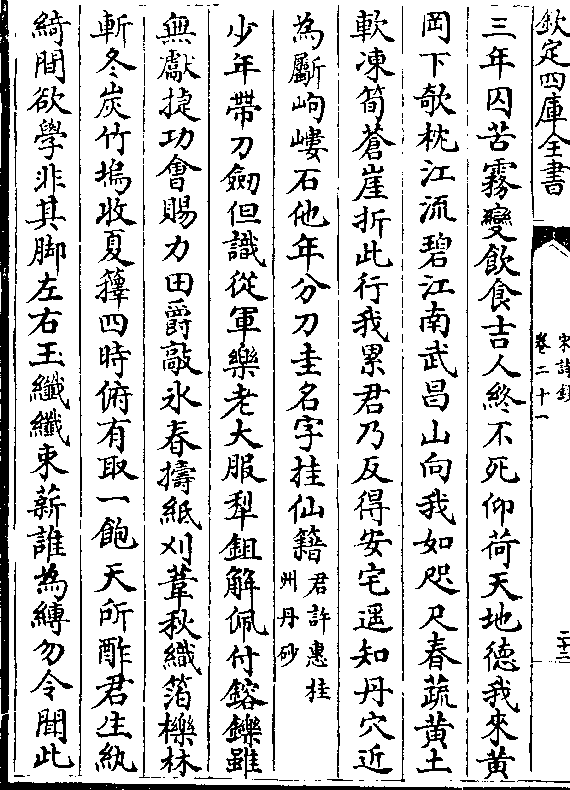 欽定四庫全書
宋詩鈔
卷二十一
二十三
三年囚苦霧變飲食吉人終不死仰荷天地徳我來黄
岡下欹枕江流碧江南武昌山向我如咫尺春蔬黄土
軟凍筍蒼崖折此行我累君乃反得安宅遥知丹穴近
為斸岣嶁石他年分刀圭名字挂仙籍君許惠桂州丹砂
少年帶刀劒但識從軍樂老大服犁鉏解佩付鎔鑠雖
無獻㨗功會賜力田爵敲氷春擣紙刈葦秋織箔櫟林
斬冬炭竹塢收夏籜四時俯有取一飽天所酢君生紈
綺間欲學非其脚左右玉纎纎束薪誰為縛勿令聞此